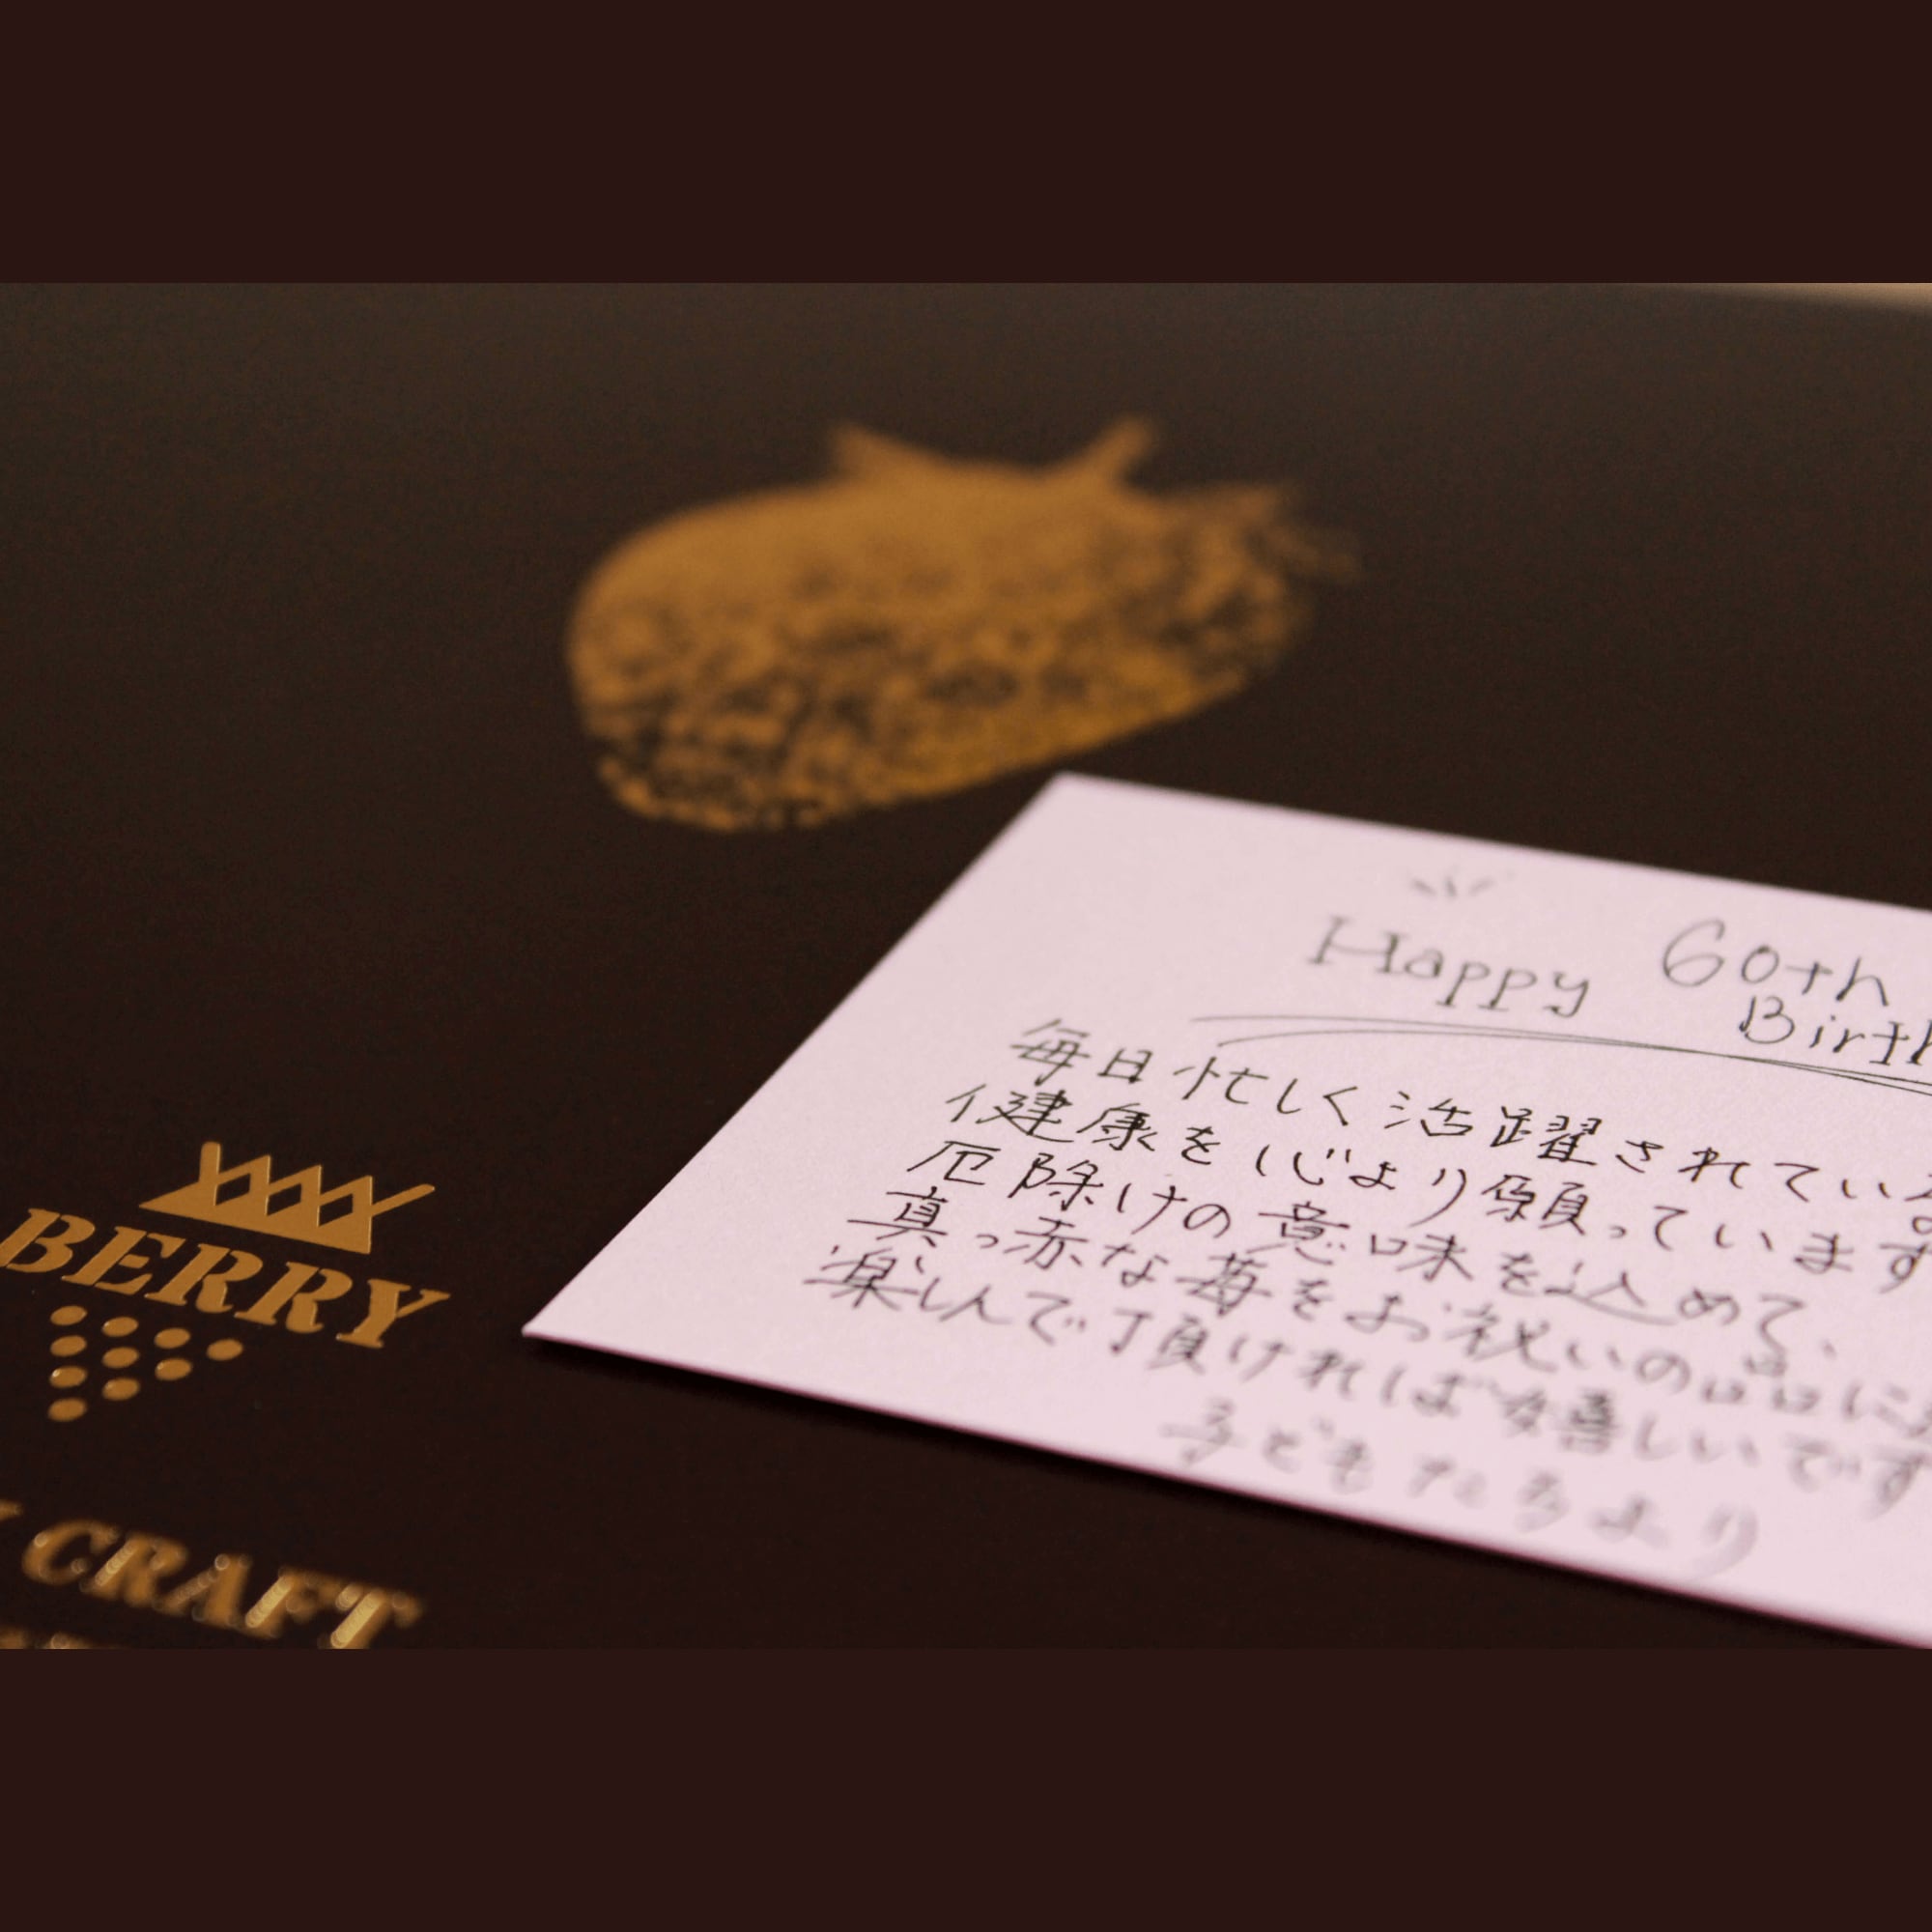 Happy 60th
Birth
毎日忙しく活躍されている
健康を心より願っています
厄除けの意味を込めて、
真っ赤な苺をお祝いの品に
楽しんで頂ければ嬉しいです
子どもたちより
BERRY
CRAFT